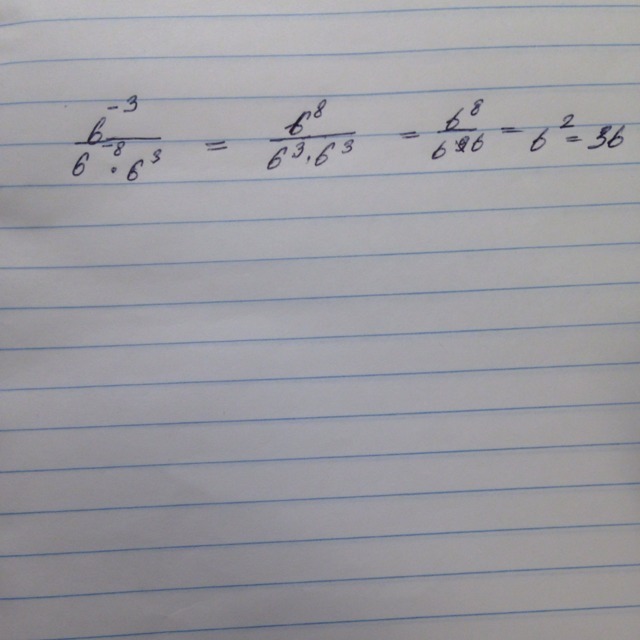 6⁻³ / (6⁻⁸ · 6³) = 6⁸ / (6³ · 6³) = 6⁸ / 6⁶ = 6² = 36